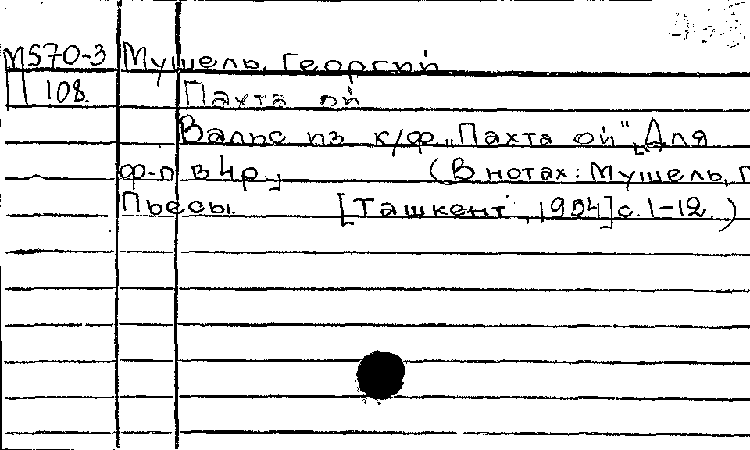 М570-3 Мушель, Георгий
П 108. Пахта ой
Вальс из к/ф „Пахта ой“, [Для
ф-п в 4 р.] (В нотах: Мушель, Г
Пьесы. [Ташкент, 1954] с. 1-12.)